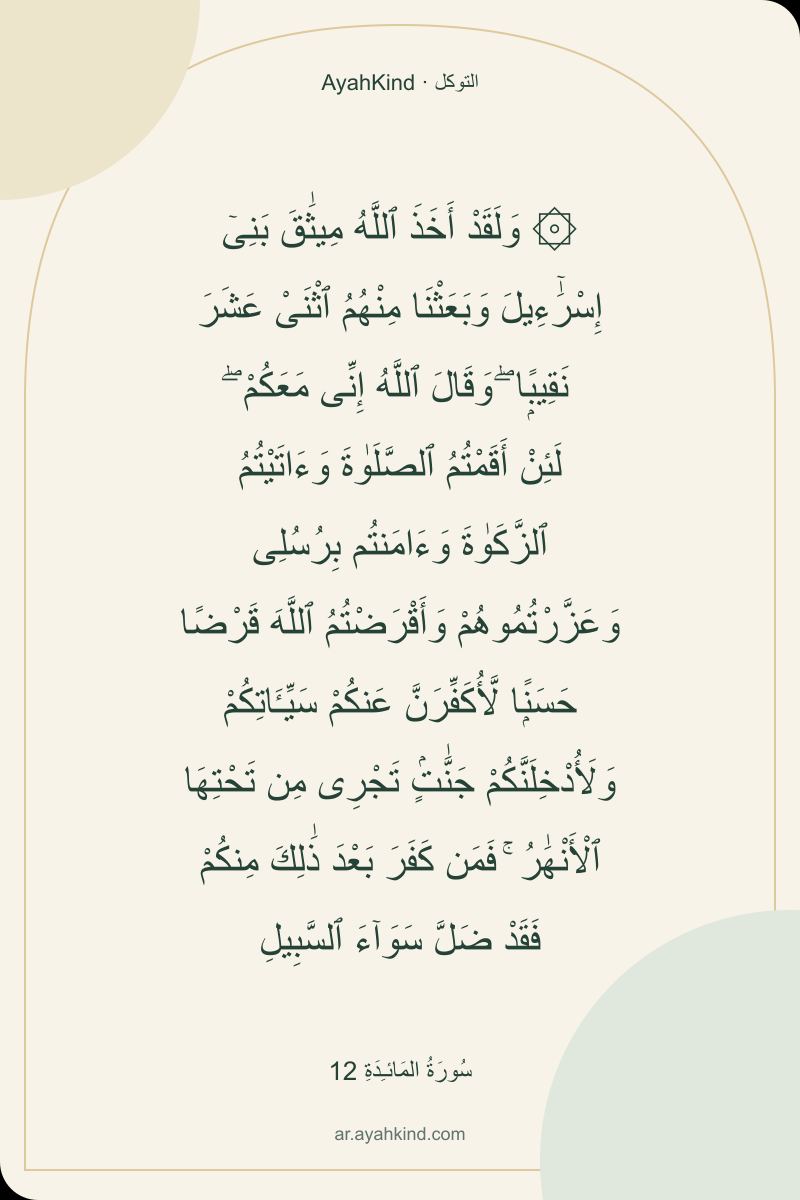 AyahKind · التوكل
۞ وَلَقَدْ أَخَذَ ٱللَّهُ مِيثَٰقَ بَنِىٓ
إِسْرَٰٓءِيلَ وَبَعَثْنَا مِنْهُمُ ٱثْنَىْ عَشَرَ
نَقِيبًۭا ۖ وَقَالَ ٱللَّهُ إِنِّى مَعَكُمْ ۖ
لَئِنْ أَقَمْتُمُ ٱلصَّلَوٰةَ وَءَاتَيْتُمُ
ٱلزَّكَوٰةَ وَءَامَنتُم بِرُسُلِى
وَعَزَّرْتُمُوهُمْ وَأَقْرَضْتُمُ ٱللَّهَ قَرْضًا
حَسَنًۭا لَّأُكَفِّرَنَّ عَنكُمْ سَيِّـَٔاتِكُمْ
وَلَأُدْخِلَنَّكُمْ جَنَّٰتٍۢ تَجْرِى مِن تَحْتِهَا
ٱلْأَنْهَٰرُ ۚ فَمَن كَفَرَ بَعْدَ ذَٰلِكَ مِنكُمْ
فَقَدْ ضَلَّ سَوَآءَ ٱلسَّبِيلِ
سُورَةُ المَائـِدَةِ 12
ar.ayahkind.com